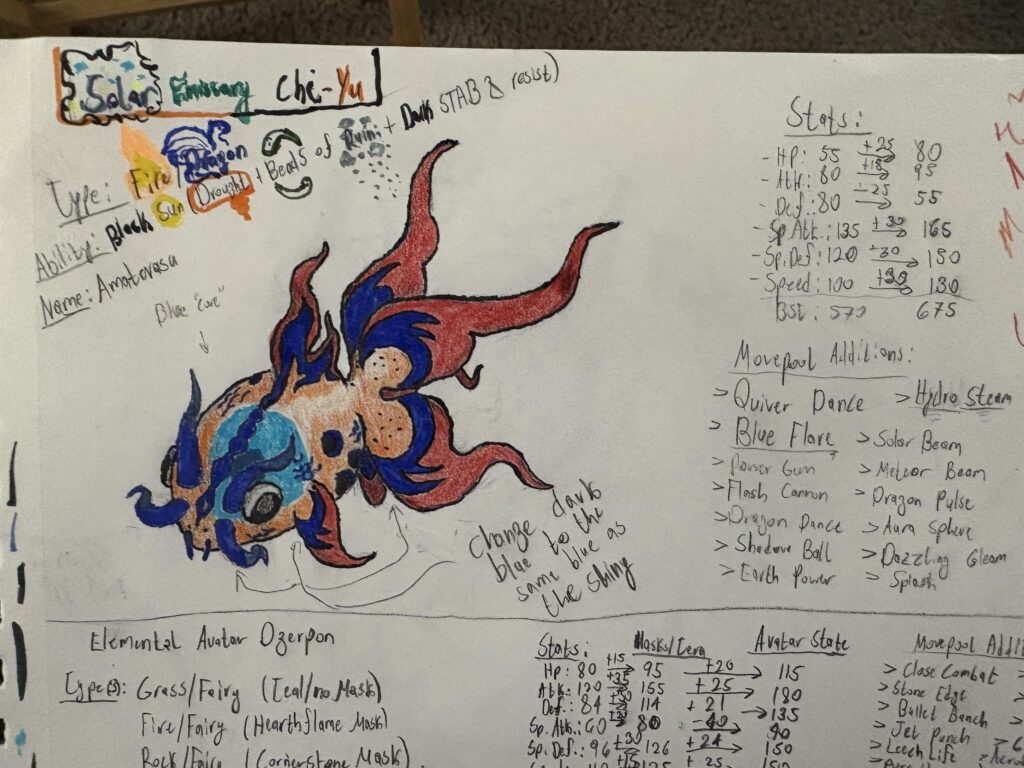 Solar Emissary Chi-Yu
Type: Fire/Dragon
Ability: Black Sun (Drought + Beads of Ruin + Dark STAB & resist)
Name: Amaterasu
Blue "core"
change dark
blue to the
same blue as
the shiny
Stats:
- HP: 55 +25 80
- Atk: 80 +15 95
- Def: 80 -25 55
- Sp.Atk.: 135 +30 165
- Sp.Def: 120 +30 150
- Speed: 100 +30 130
Bst: 570 675
Movepool Additions:
> Quiver Dance > Hydro Steam
> Blue Flare > Solar Beam
> Power Gem > Meteor Beam
> Flash Cannon > Dragon Pulse
> Dragon Dance > Aura Sphere
> Shadow Ball > Dazzling Gleam
> Earth Power > Splash
Elemental Avatar Ogerpon
Type(s): Grass/Fairy (Teal/no Mask)
Fire/Fairy (Hearthflame Mask)
Rock/Fairy (Cornerstone Mask)
Stats: Masks/Tera Avatar State
Hp: 80 +15 95 +20 115
Atk: 120 +35 155 +25 180
Def.: 84 +30 114 +21 135
Sp. Atk: 60 80 -40 40
Sp. Def.: 96 +30 126 +24 150
+15 +25 150
Movepool Additi
> Close Combat
> Stone Edge
> Bullet Punch
> Jet Punch
> Leech Life